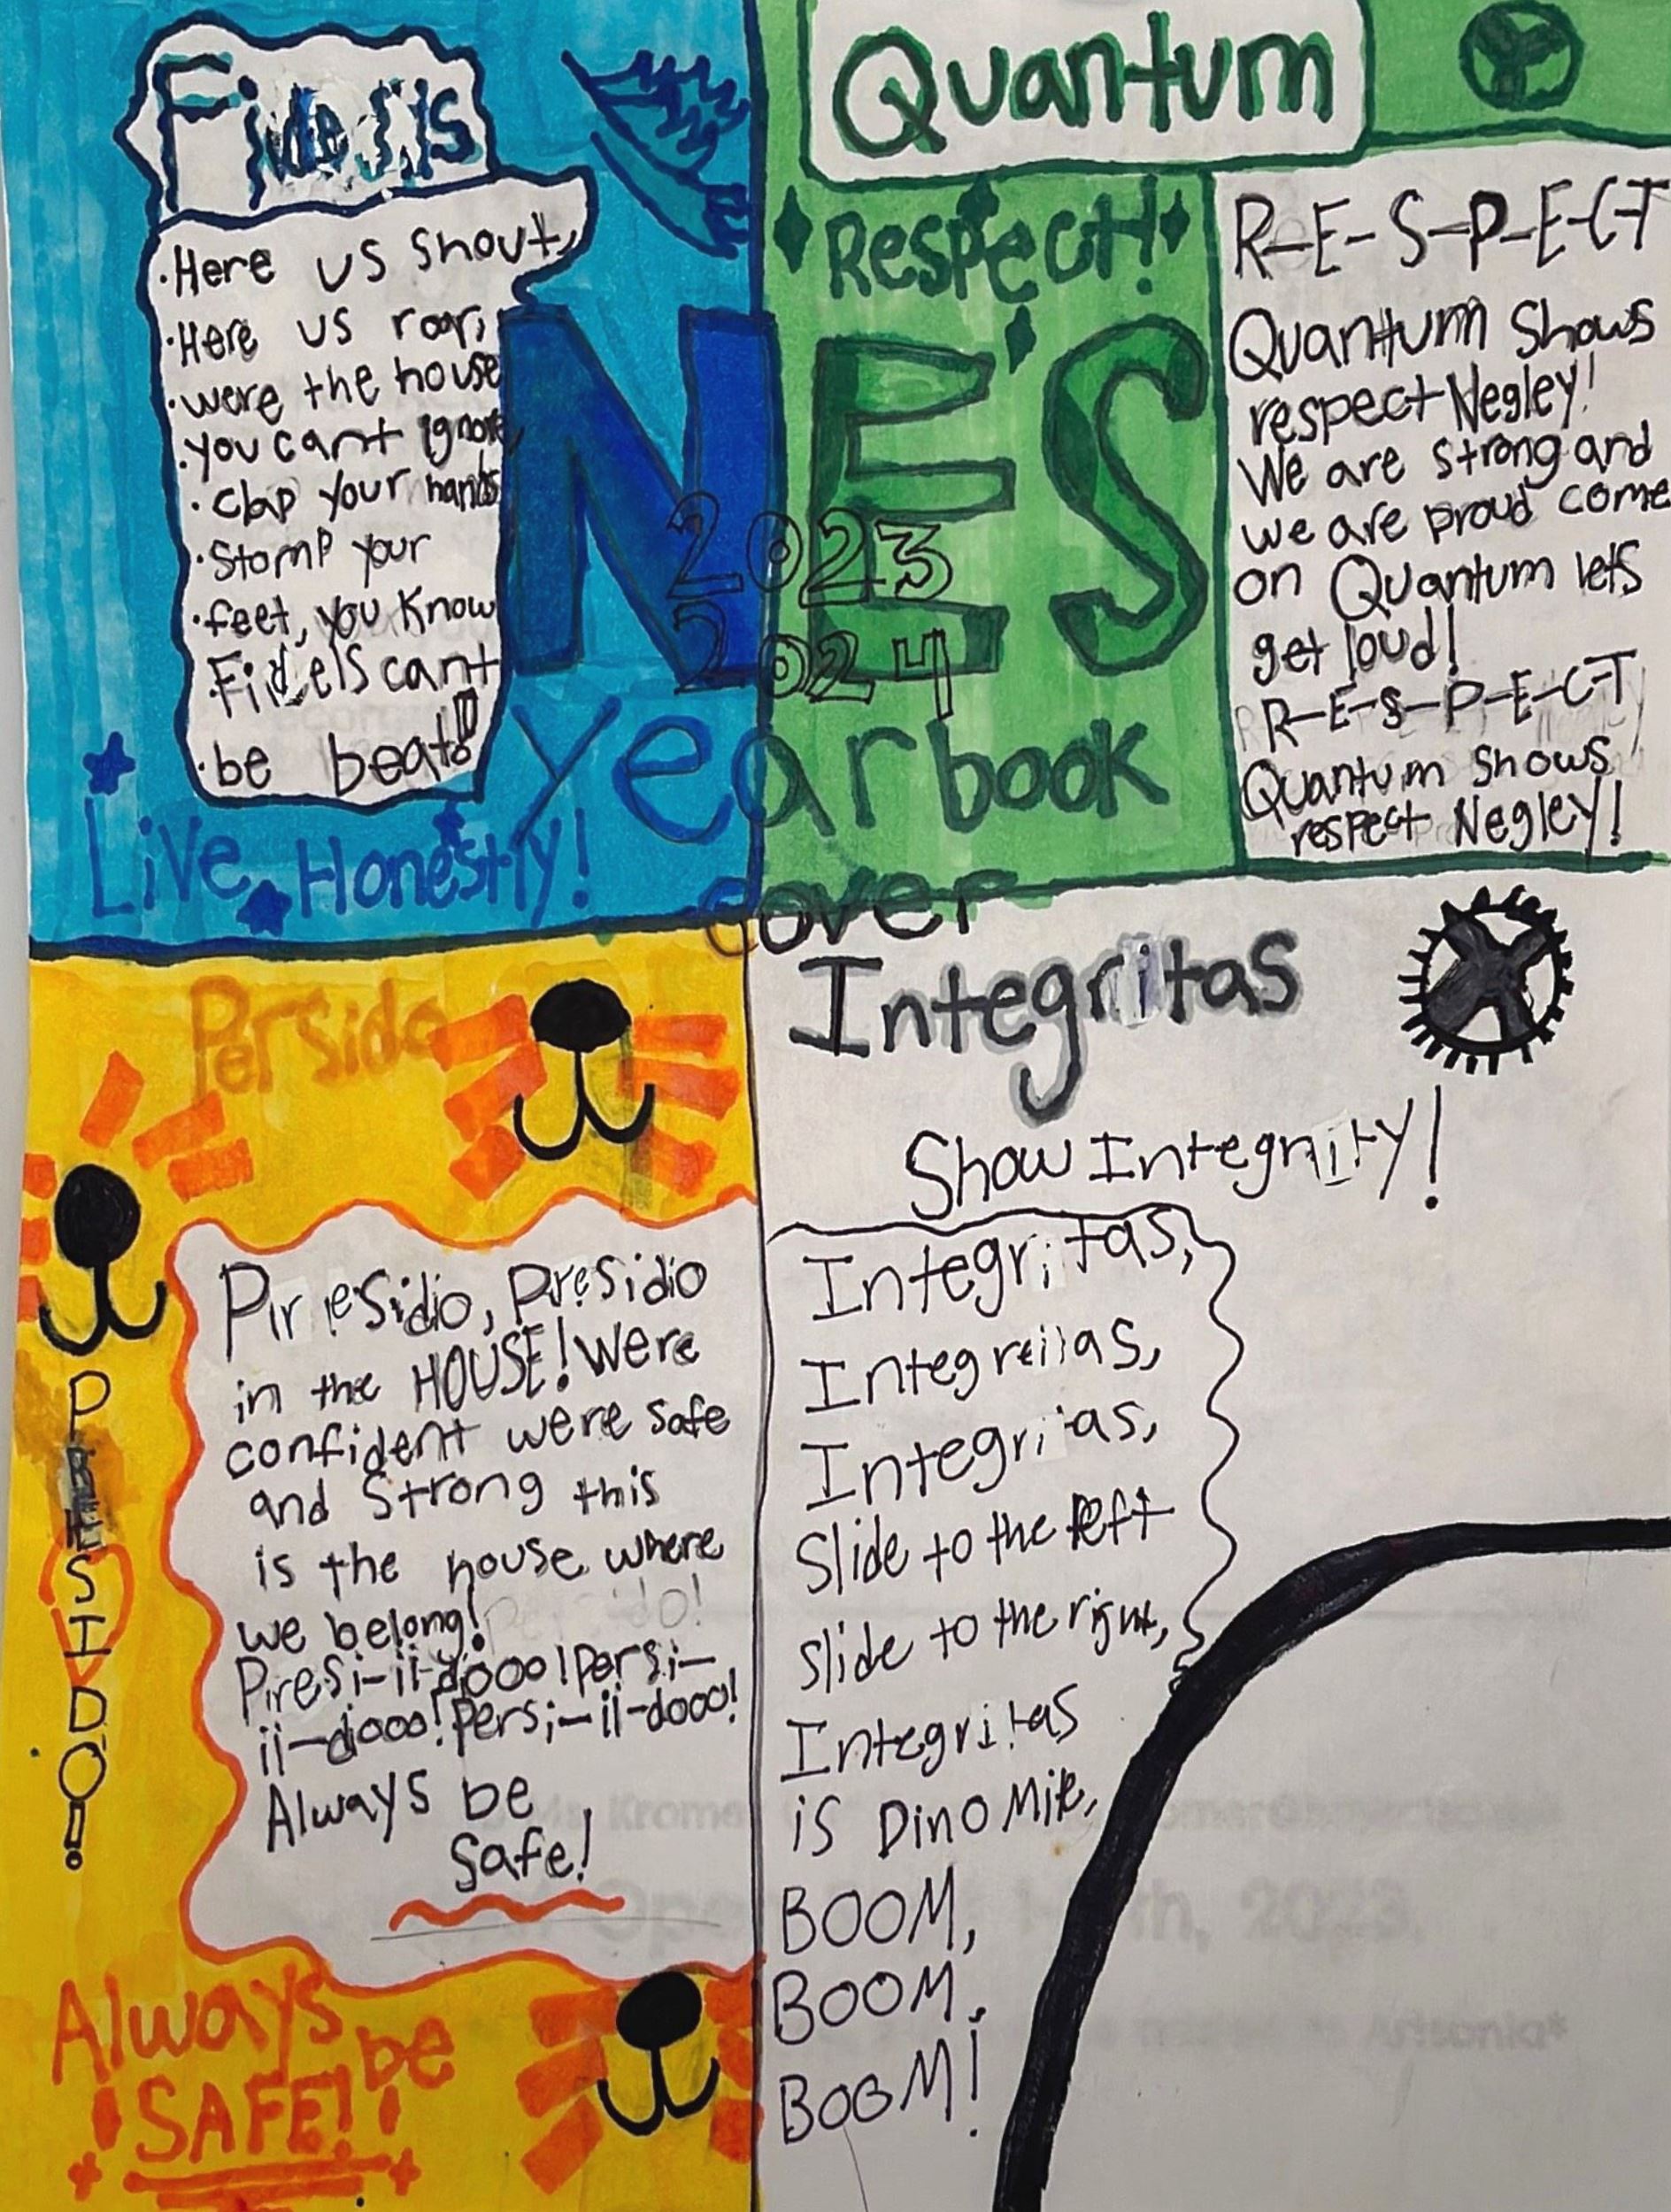 Fidelis
·Here us shout,
·Here us roar,
·were the house
·you cant ignore,
·clap your hands
·Stomp your
·feet, you know
·Fidels cant
·be beat!!
Live Honestly!
Quantum
Respect!
R-E-S-P-E-C-T
Quantum Shows
respect Negley!
We are strong and
we are proud come
on Quantum lets
get loud!
R-E-S-P-E-C-T
Quantum Shows
respect Negley!
NES
2023
2024
yearbook
cover
Persido
PRESIDO!
Presidio, Presidio
in the HOUSE! Were
confident were safe
and Strong this
is the house where
we belong!
Presi-ii-dooo! Persi-
ii-dooo! Persi-ii-dooo!
Always be
Safe!
Always be
!SAFE!!
Integritas
Show Integrity!
Integritas,
Integreitas,
Integritas,
Slide to the left
slide to the right,
Integritas
is Dino Mite,
BOOM,
BOOM,
BOOM!